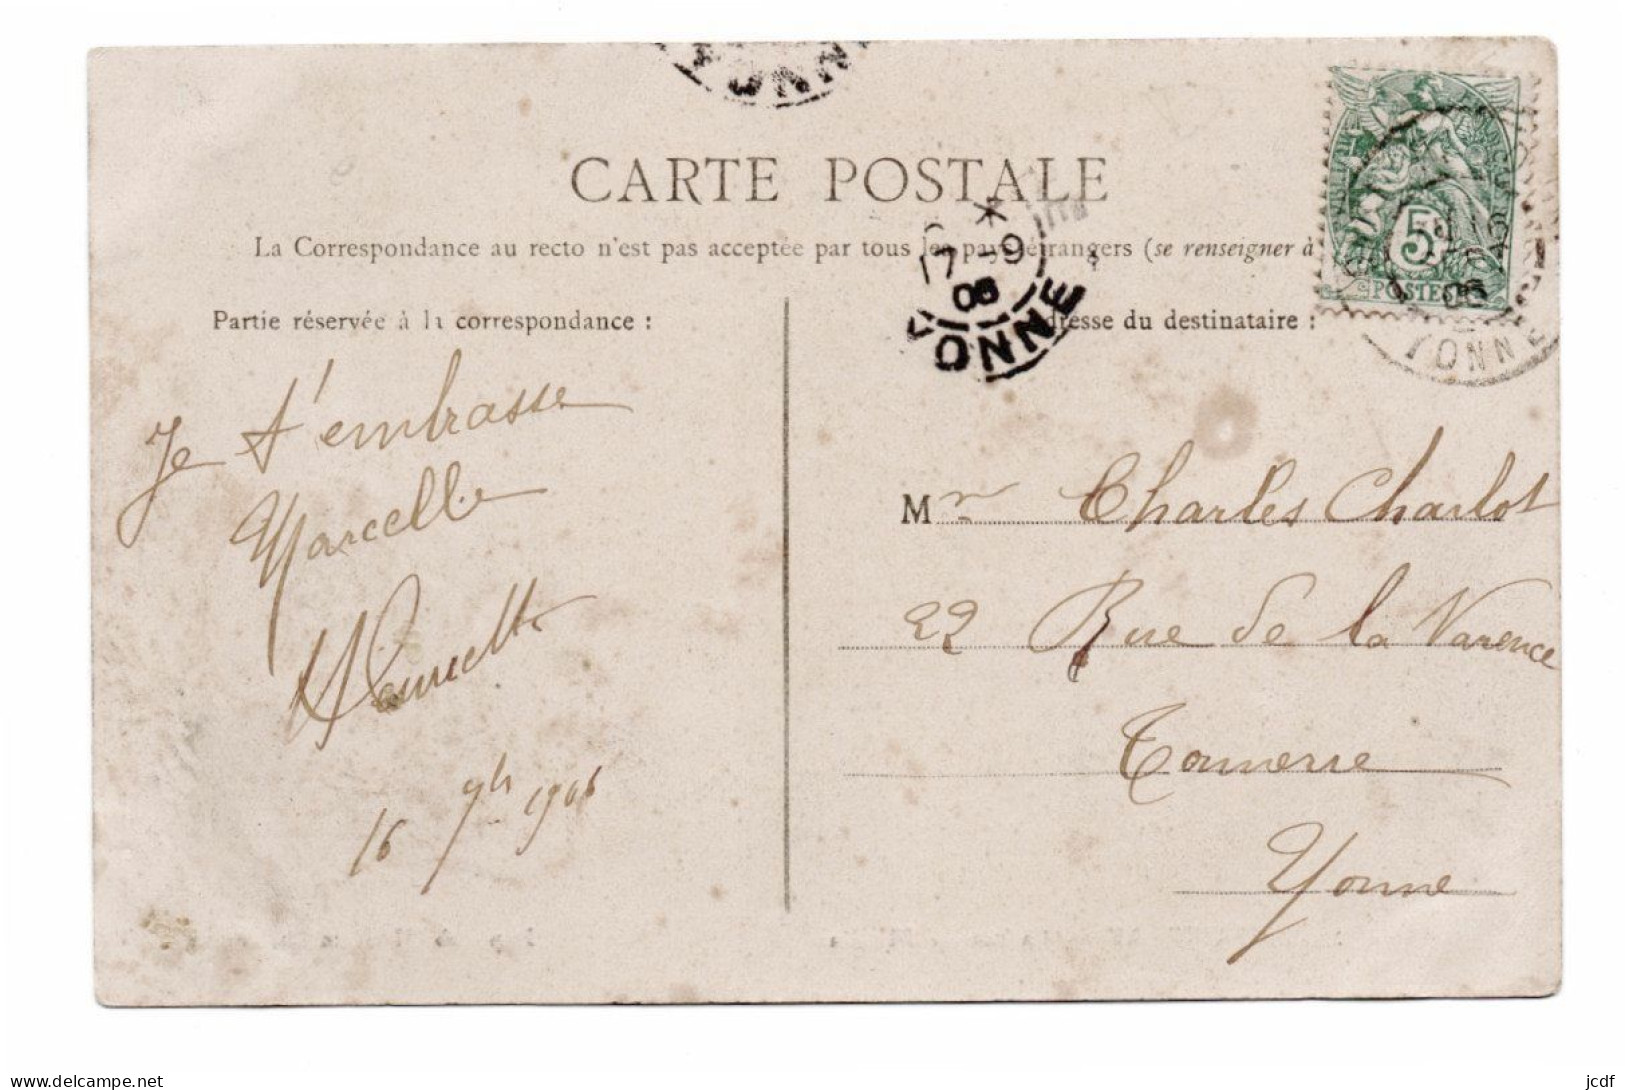 CARTE POSTALE
La Correspondance au recto n'est pas acceptée par tous les pays étrangers (se renseigner à
Partie réservée à la correspondance :
Adresse du destinataire :
17 - 9
06
YONNE
5
POSTES
06
YONNE
Je t'embrasse
Marcelle
Henriette
16 9bre 1906
Mr Charles Charlot
22 Rue de la Varence
Tonnerre
Yonne
jcdf